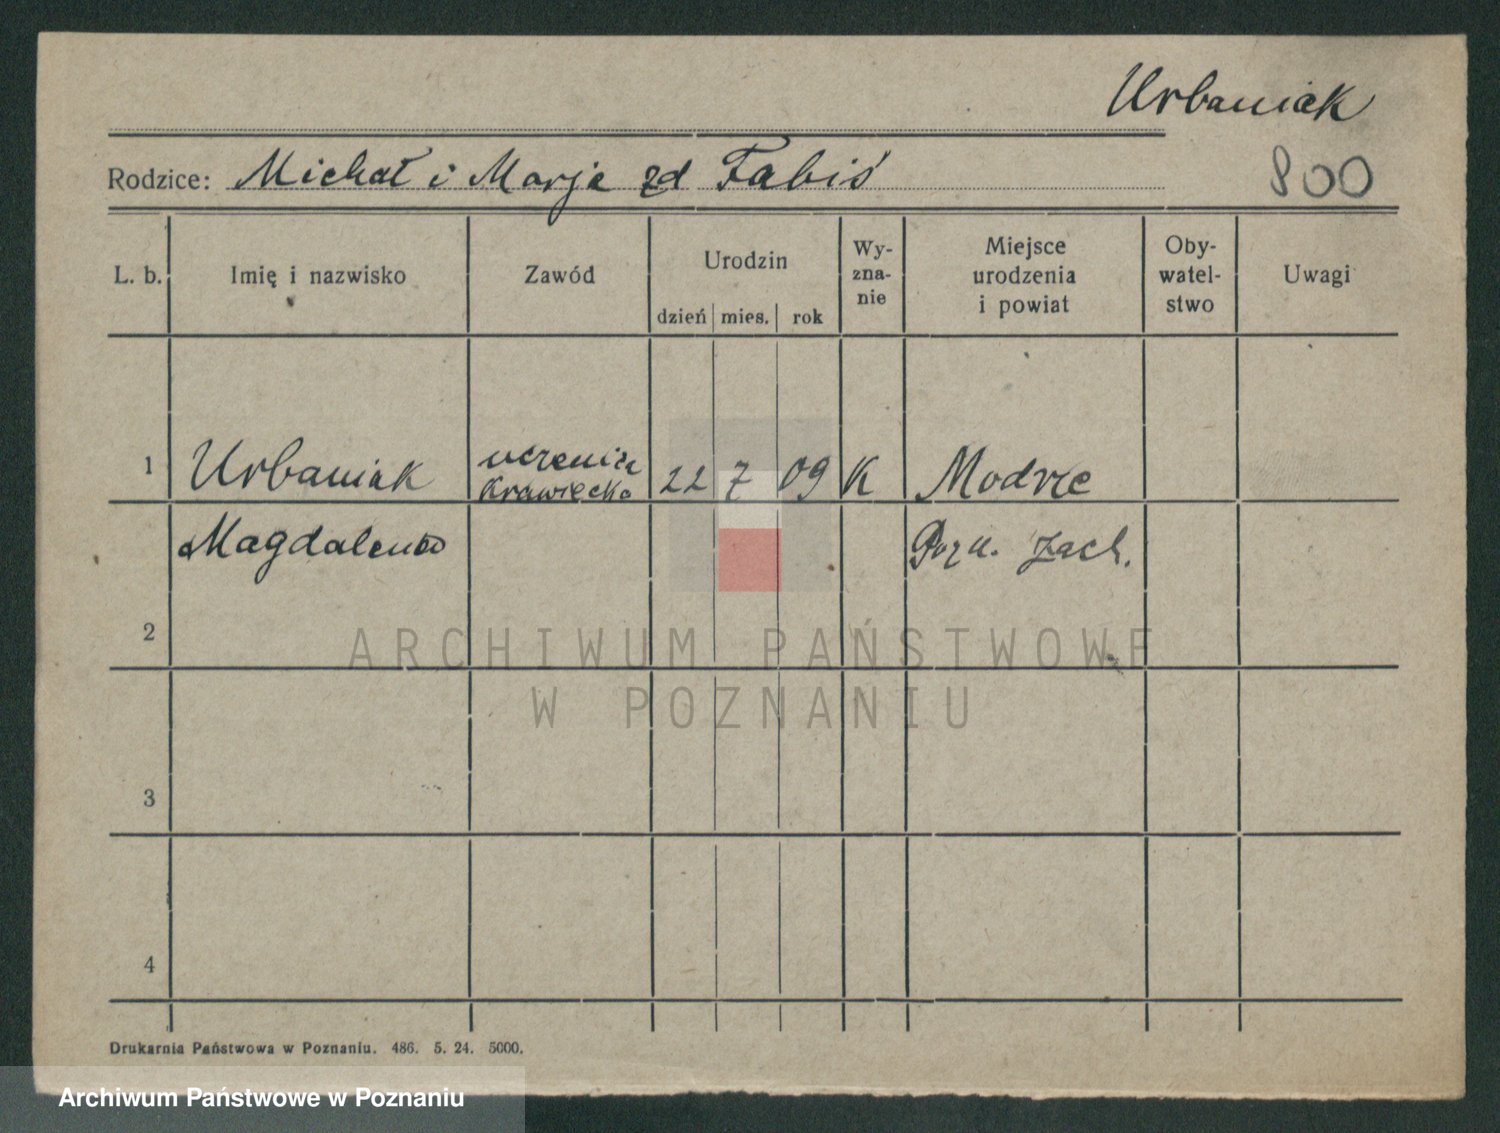 Urbaniak
Rodzice: Michał i Marja zd Fabiś
800
L. b. Imię i nazwisko Zawód Urodzin dzień mies. rok Wy-zna-nie Miejsce urodzenia i powiat Oby-watel-stwo Uwagi
1 Urbaniak uczenica krawiecka 22 7 09 K Modrze
Magdalena Pozn. Zach.
2
ARCHIWUM PAŃSTWOWE
W POZNANIU
3
4
Drukarnia Państwowa w Poznaniu. 486. 5. 24. 5000.
Archiwum Państwowe w Poznaniu